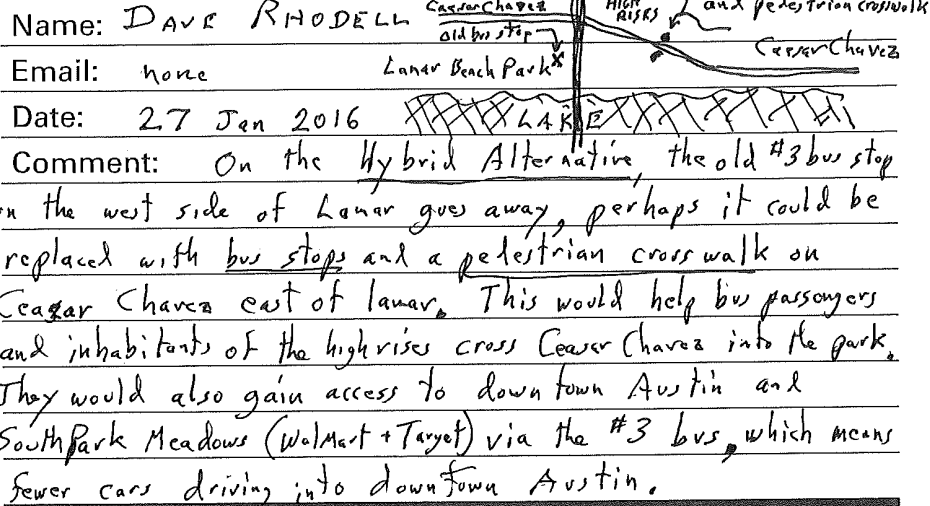 Name: DAVE RHODELL
Caesar Chavez
HIGH
RISKS
and pedestrian crosswalk
old bus stop
Caesar Chavez
Email: none
Lamar Beach Park X
Date: 27 Jan 2016
LAKE
Comment: On the Hybrid Alternative, the old #3 bus stop
on the west side of Lamar goes away, perhaps it could be
replaced with bus stops and a pedestrian crosswalk on
Ceasar Chavez east of lamar. This would help bus passengers
and inhabitants of the highrises cross Ceaser Chavez into the park.
They would also gain access to downtown Austin and
SouthPark Meadows (Walmart + Target) via the #3 bus, which means
fewer cars driving into downtown Austin.